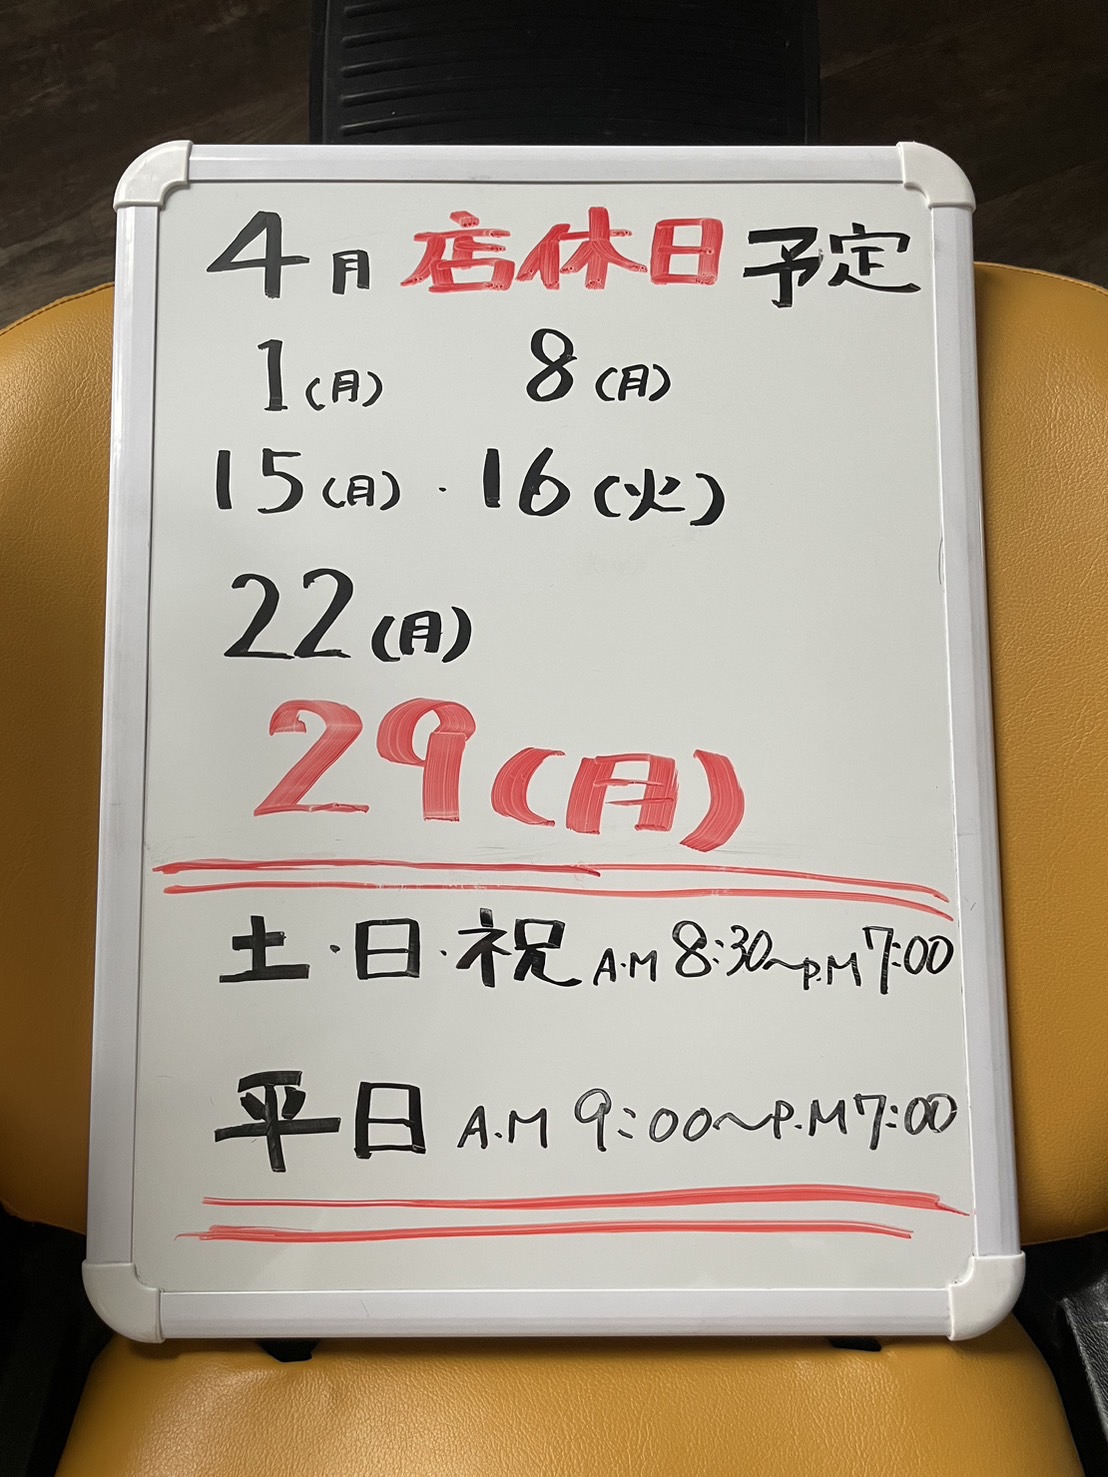 4月 店休日 予定
1(月) 8(月)
15(月)・16(火)
22(月)
29(月)
土・日・祝 A.M 8:30~P.M 7:00
平日 A.M 9:00~P.M 7:00